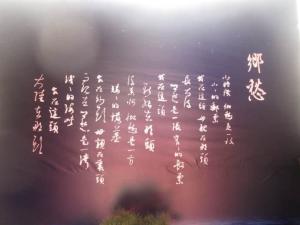 鄉愁
小時候 鄉愁是一枚
小小的郵票
我在這頭 母親在那頭
長大後
鄉愁是一張窄窄的船票
我在這頭
新娘在那頭
後來呵 鄉愁是一方
矮矮的墳墓
我在外頭 母親在裏頭
而現在 鄉愁是一灣
淺淺的海峽
我在這頭
大陸在那頭